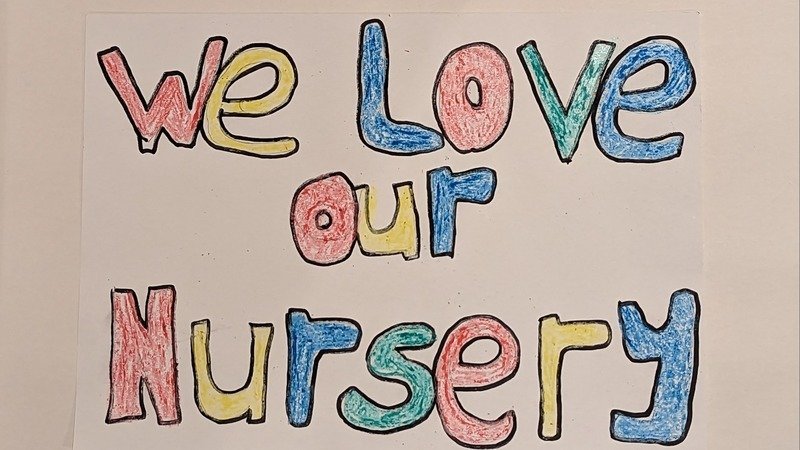 We Love
our
Nursery